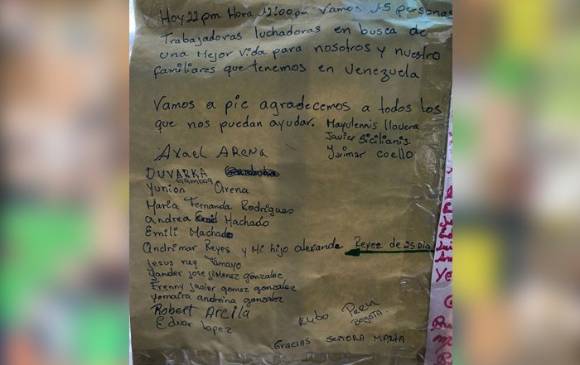 Hoy 22 pm Hora 12:00pm Vamos 15 persona
Trabajadoras luchadoras en busca de
una Mejor Vida para nosotros y nuestro
familiares que tenemos en Venezuela
Vamos a pie agradecemos a todos los
que nos puedan ayudar. Mayulennis
Javier Sicilianis
Axael Arena Yurimar Coello
DUVARKA
Yunion Arena
Maria Fernanda Rodriguez
andrea Machado
Emili Machado
andrimar Reyes y Mi hijo alexande Reyes de 25 Dia
Jesus Tamayo
Yander jose jimenez gonzalez
Frenny javier gomez gonzalez
Yomaira andreina gonzalez
Robert Arcila
Eduar Lopez
Rubo Peru
Bogota
Gracias SEÑORA MARTA